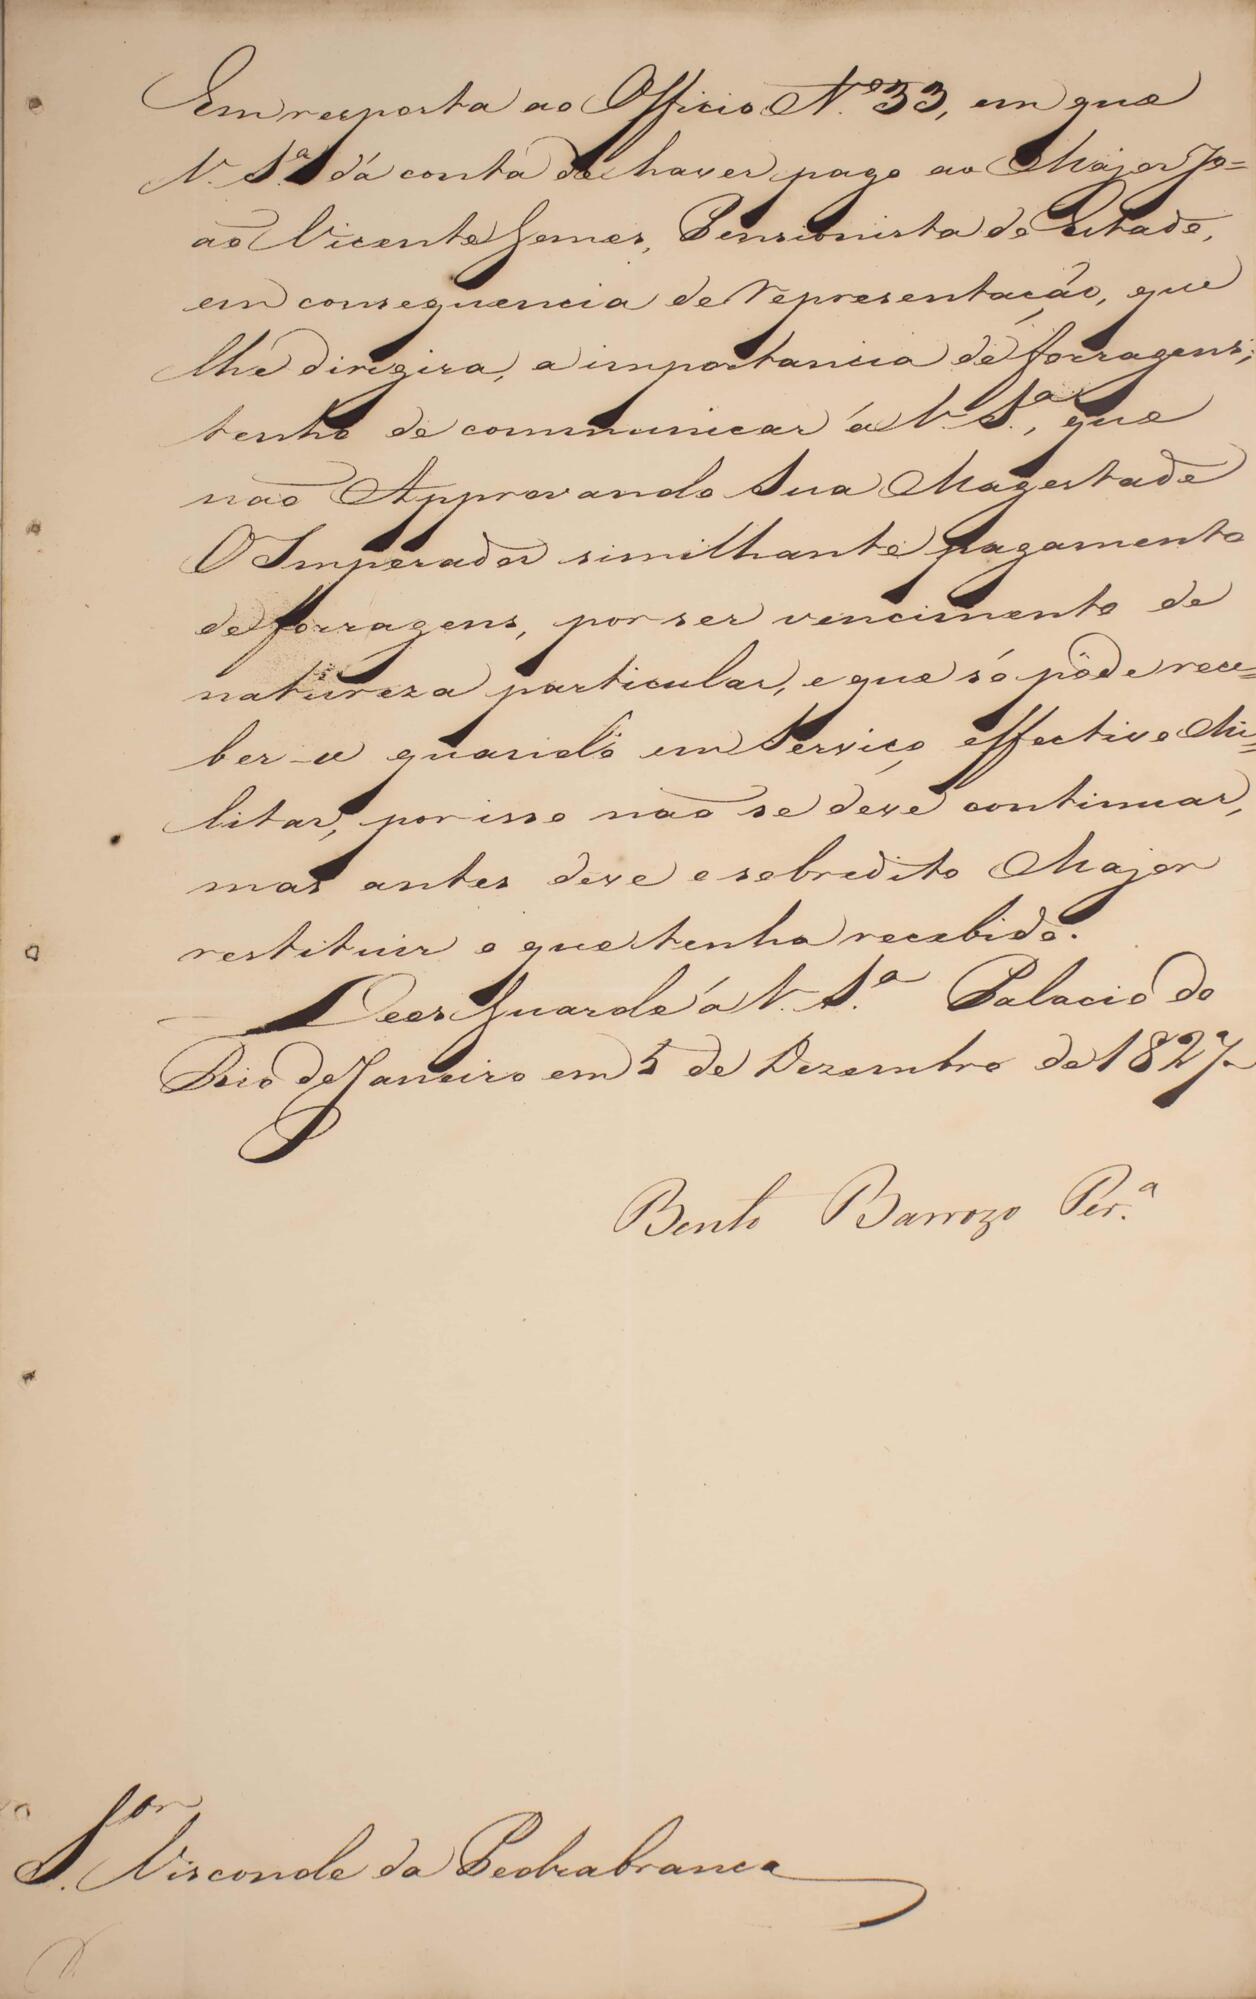 Em resposta ao Officio N.º 33, em que
V. S.ª dá conta de haver pago ao Major Jo=
ão Vicente Gomes, Pensionista do Estado,
em consequencia de representação, que
lhe dirigira, a importancia de forragens;
tenho de communicar á V. S.ª, que
não Approvando Sua Magestade
O Imperador similhante pagamento
de forragens, por ser vencimento de
natureza particular, e que só póde rece=
ber-se quando em Serviço effectivo Mi=
litar, por isso não se deve continuar,
mas antes deve o sobredito Major
restituir o que tenha recebido.
Deos Guarde á V. S.ª Palacio do
Rio de Janeiro em 5 de Dezembro de 1827
Bento Barrozo Per.ª
S.or Visconde da Pedrabranca